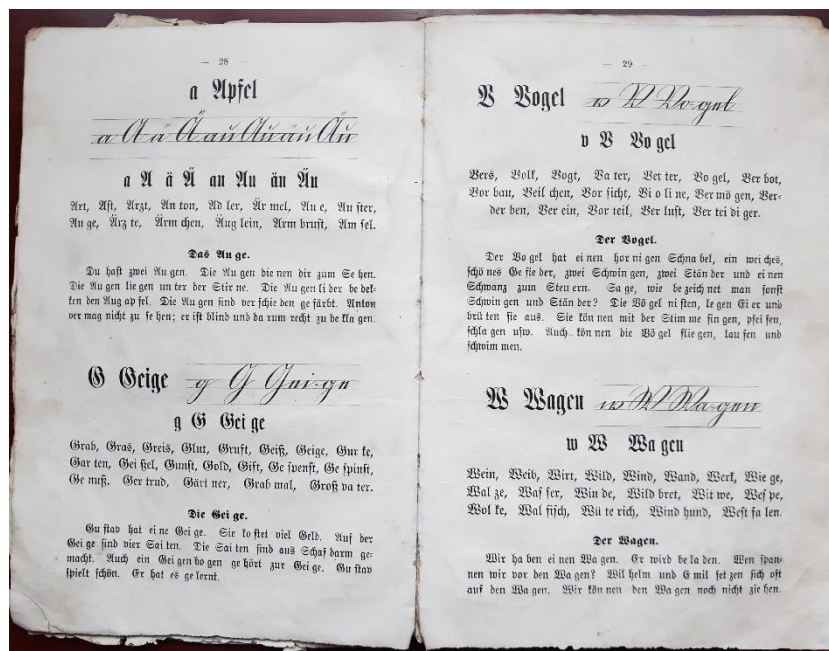 — 28 —
a Apfel
a A ä Ä au Au äu Äu
a A ä Ä au Au äu Äu
Art, Ast, Arzt, An ton, Ad ler, Är mel, Au e, Au ster,
Au ge, Ärz te, Ärm chen, Äug lein, Arm brust, Am sel.
Das Au ge.
Du hast zwei Au gen. Die Au gen die nen dir zum Se hen.
Die Au gen lie gen un ter der Stir ne. Die Au gen li der be dek-
ken den Aug ap fel. Die Au gen sind ver schie den ge färbt. Anton
ver mag nicht zu se hen; er ist blind und da rum recht zu be kla gen.
G Geige g G Gei-ge
g G Gei ge
Grab, Gras, Greis, Glut, Gruft, Geiß, Geige, Gur ke,
Gar ten, Gei ßel, Gunst, Gold, Gift, Ge spenst, Ge spinst,
Ge nuß, Ger trud, Gärt ner, Grab mal, Groß va ter.
Die Gei ge.
Gu stav hat ei ne Gei ge. Sie ko stet viel Geld. Auf der
Gei ge sind vier Sai ten. Die Sai ten sind aus Schaf darm ge-
macht. Auch ein Gei gen bo gen ge hört zur Gei ge. Gu stav
spielt schön. Er hat es ge lernt.
— 29 —
V Vogel v V Vo-gel
v V Vo gel
Vers, Volk, Vogt, Va ter, Vet ter, Vo gel, Ver bot,
Vor bau, Veil chen, Vor sicht, Vi o li ne, Ver mö gen, Ver-
der ben, Ver ein, Vor teil, Ver lust, Ver tei di ger.
Der Vogel.
Der Vo gel hat ei nen hor ni gen Schna bel, ein wei ches,
schö nes Ge fie der, zwei Schwin gen, zwei Stän der und ei nen
Schwanz zum Steu ern. Sa ge, wie be zeich net man sonst
Schwin gen und Stän der? Die Vö gel ni sten, le gen Ei er und
brü ten sie aus. Sie kön nen mit der Stim me sin gen, pfei fen,
schla gen usw. Auch kön nen die Vö gel flie gen, lau fen und
schwim men.
W Wagen w W Wa-gen
w W Wa gen
Wein, Weib, Wirt, Wild, Wind, Wand, Werk, Wie ge,
Wal ze, Was ser, Win de, Wild bret, Wit we, Wes pe,
Wol ke, Wal fisch, Wü te rich, Wind hund, West fa len.
Der Wagen.
Wir ha ben ei nen Wa gen. Er wird be la den. Wen span-
nen wir vor den Wa gen? Wil helm und E mil set zen sich oft
auf den Wa gen. Wir kön nen den Wa gen noch nicht zie hen.